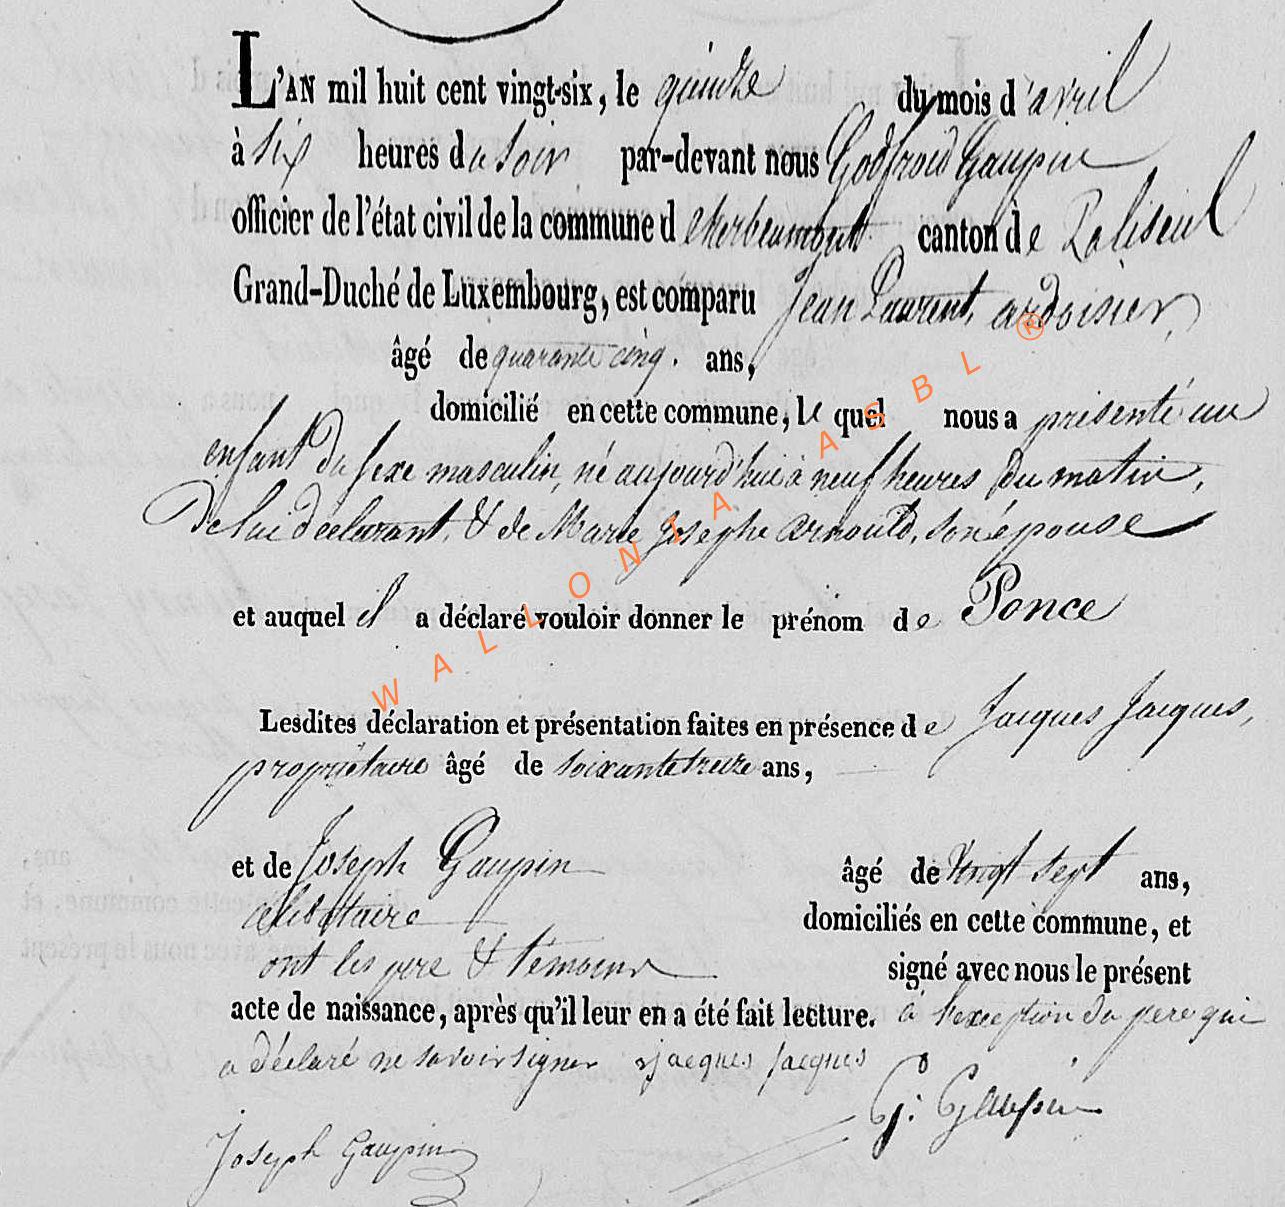 L'AN mil huit cent vingt-six, le quinze du mois d'avril
à six heures du soir par-devant nous Godfroid Gaupin
officier de l'état civil de la commune d'herbeumont canton de Paliseul
Grand-Duché de Luxembourg, est comparu Jean Laurent, ardoisier,
âgé de quarante cinq. ans,
domicilié en cette commune, le quel nous a présenté un
enfant du sexe masculin, né aujourd'hui à neuf heures du matin,
De lui déclarant, & de Marie Josephe Arnould, son épouse
et auquel il a déclaré vouloir donner le prénom de Ponce
Lesdites déclaration et présentation faites en présence de Jacques Jacques,
propriétaire âgé de soixante treize ans,
et de Joseph Gaupin âgé de Vingt sept ans,
célibataire domiciliés en cette commune, et
ont les pere & témoins signé avec nous le présent
acte de naissance, après qu'il leur en a été fait lecture. à l'exception du pere qui
a déclaré ne savoir signer jacques jacques
G: Gaupin
Joseph Gaupin
WALLONIA ASBL ®